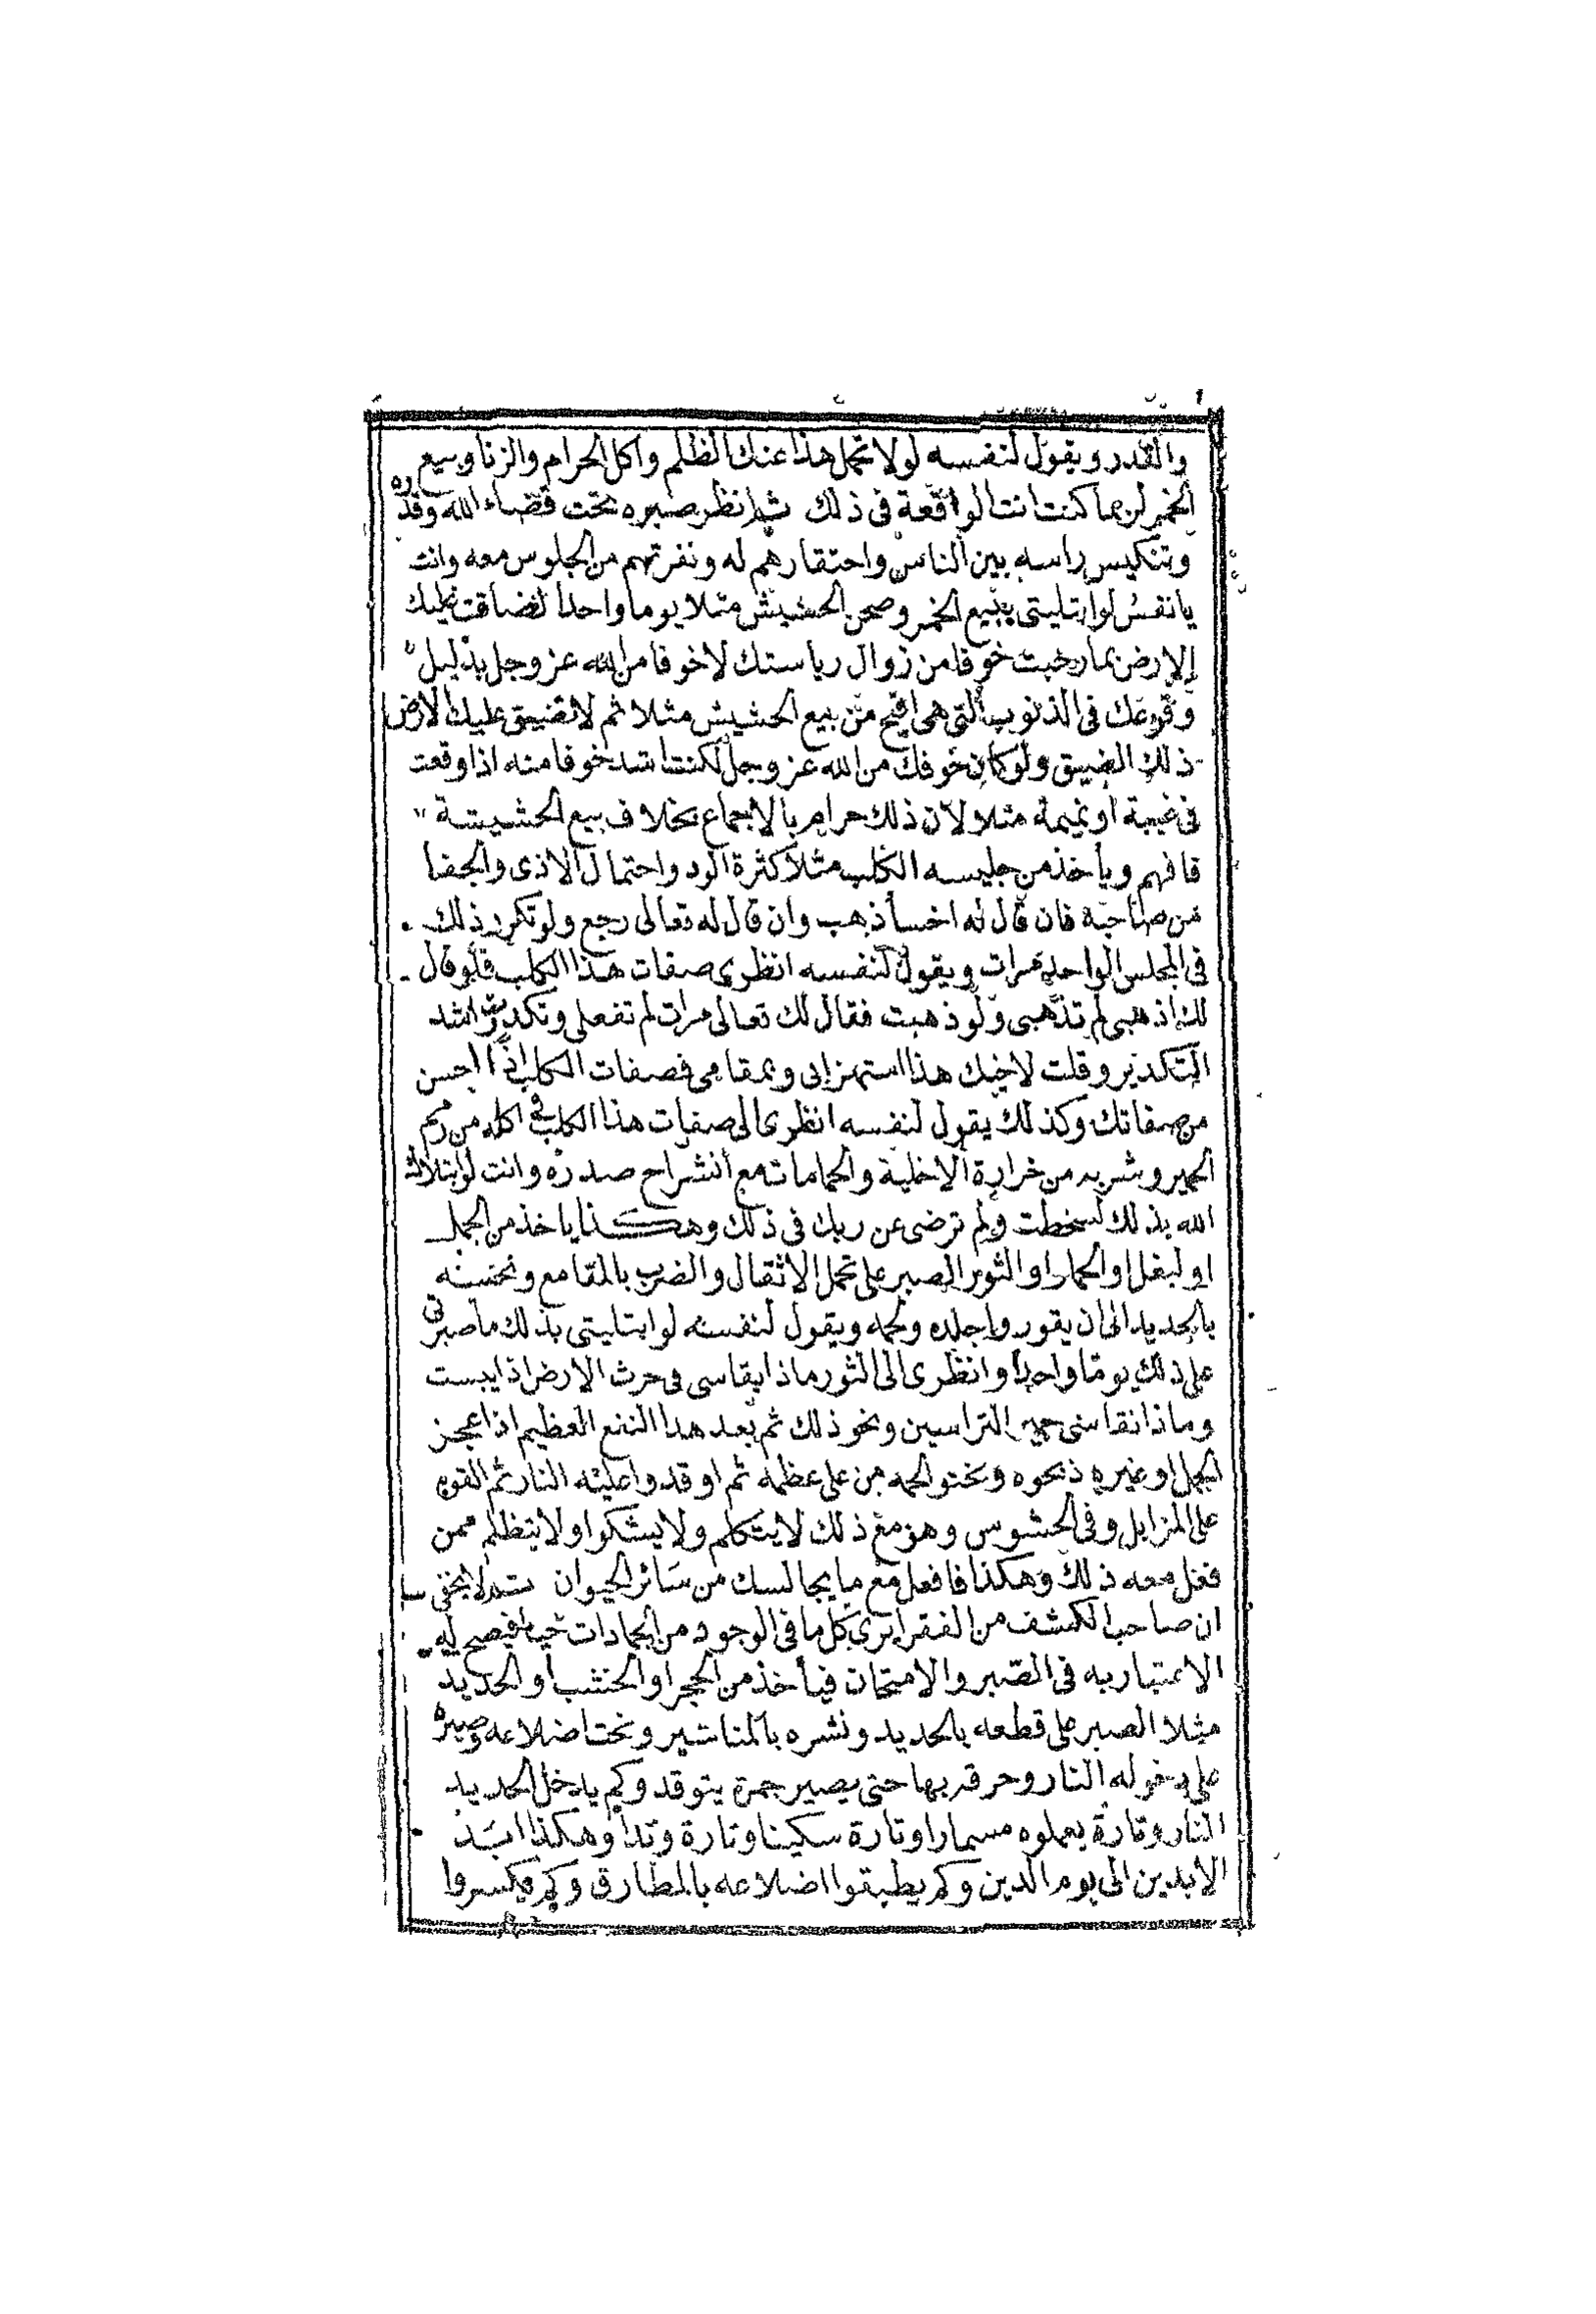 والقدر ويقول لنفسه لولا تحمل هذا عنك الظلم واكل الحرام والزنا وبيع
الخمر لربما كنت انت الواقعة في ذلك ثم انظر صبره تحت قضاء الله وقدره
وتنكيس راسه بين الناس واحتقارهم له ونفرتهم من الجلوس معه وانت
يا نفس لو ابتليتي ببيع الخمر وصحن الحشيش مثلا يوما واحدا لضاقت عليك
الارض بما رحبت خوفا من زوال رياستك لا خوفا من الله عز وجل بدليل
وقوعك في الذنوب التي هي اقبح من بيع الحشيش مثلا ثم لا تضيق عليك الارض
ذلك الضيق ولو كان خوفك من الله عز وجل لكنت اشد خوفا منه اذا وقعت
في غيبة او نميمة مثلا لان ذلك حرام بالاجماع بخلاف بيع الحشيشة
فافهم وياخذ من جليسه الكلب مثلا كثرة الود واحتمال الاذى والجفا
من صاحبه فان قال له اخسا ذهب وان قال له تعالى رجع ولو تكرر ذلك
في المجلس الواحد مرات ويقول لنفسه انظري صفات هذا الكلب فلو قال
لك اذهبي لم تذهبي ولو ذهبت فقال لك تعالى مرات لم تفعلي وتكدرتي اشد
التكدير وقلت لاخيك هذا استهزا بي وبمقامي فصفات الكلب اذا احسن
من صفاتك وكذلك يقول لنفسه انظري الى صفات هذا الكلب في اكله من رمم
الحمير وشربه من خرارة الاخلية والحمامات مع انشراح صدره وانت لو ابتلاك
الله بذلك لسخطت ولم ترضى عن ربك في ذلك وهكذا ياخذ من الجمل
او لبغل او الحمار او الثور الصبر على تحمل الاثقال والضرب بالمقامع ونخسه
بالحديد الى ان يقوروا جلده ولحمه ويقول لنفسه لو ابتليتي بذلك ما صبرتي
على ذلك يوما واحدا وانظري الى الثور ماذا يقاسي في حرث الارض اذا يبست
وماذا تقاسي حمير التراسين ونحو ذلك ثم بعد هذا النفع العظيم اذا عجز
الجمل او غيره ذبحوه ونحتوا لحمه من على عظمه ثم اوقدوا عليه النار ثم القوه
على المزابل وفي الحشوش وهو مع ذلك لا يتكلم ولا يشكوا ولا يتظلم ممن
فعل معه ذلك وهكذا فافعل مع ما يجالسك من سائر الحيوان ثم لا يخفى
ان صاحب الكشف من الفقرا يرى كل ما في الوجود من الجمادات حيا فيصح له
الاعتبار به في الصبر والامتحان فياخذ من الحجر او الخشب او الحديد
مثلا الصبر على قطعه بالحديد ونشره بالمناشير ونحت اضلاعه وصبره
على دخوله النار وحرقه بها حتى يصير جمرة يتوقد وكم يدخل الحديد
النار وتارة يعملوه مسمارا وتارة سكينا وتارة وتدا وهكذا ابد
الابدين الى يوم الدين وكم يطبقوا اضلاعه بالمطارق وكم يكسروا